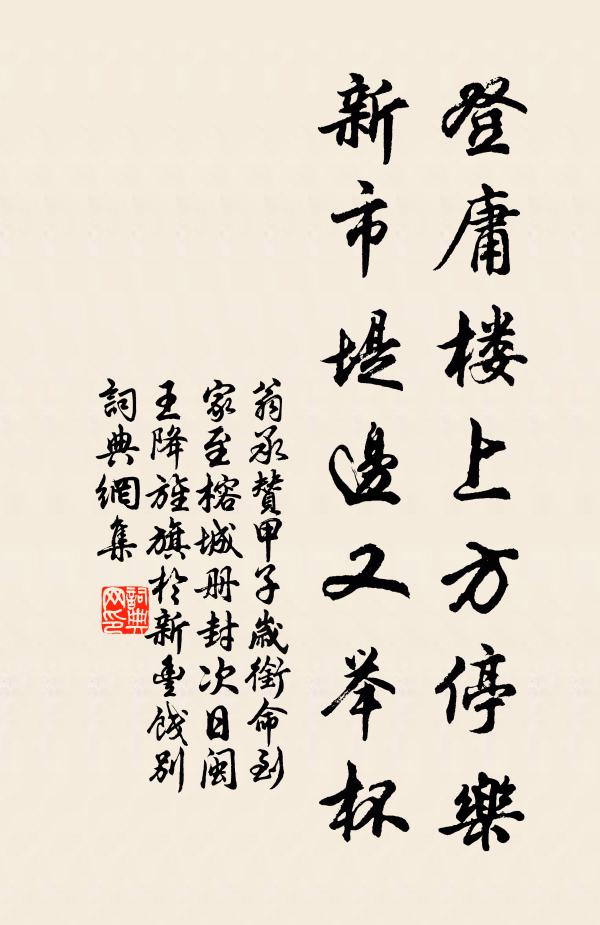 登庸楼上方停樂
新市堤邊又举杯
翁承贊甲子歲銜命到
家至榕城册封次日閩
王降旌旗於新豊餞别
詞典網集
詞典网印